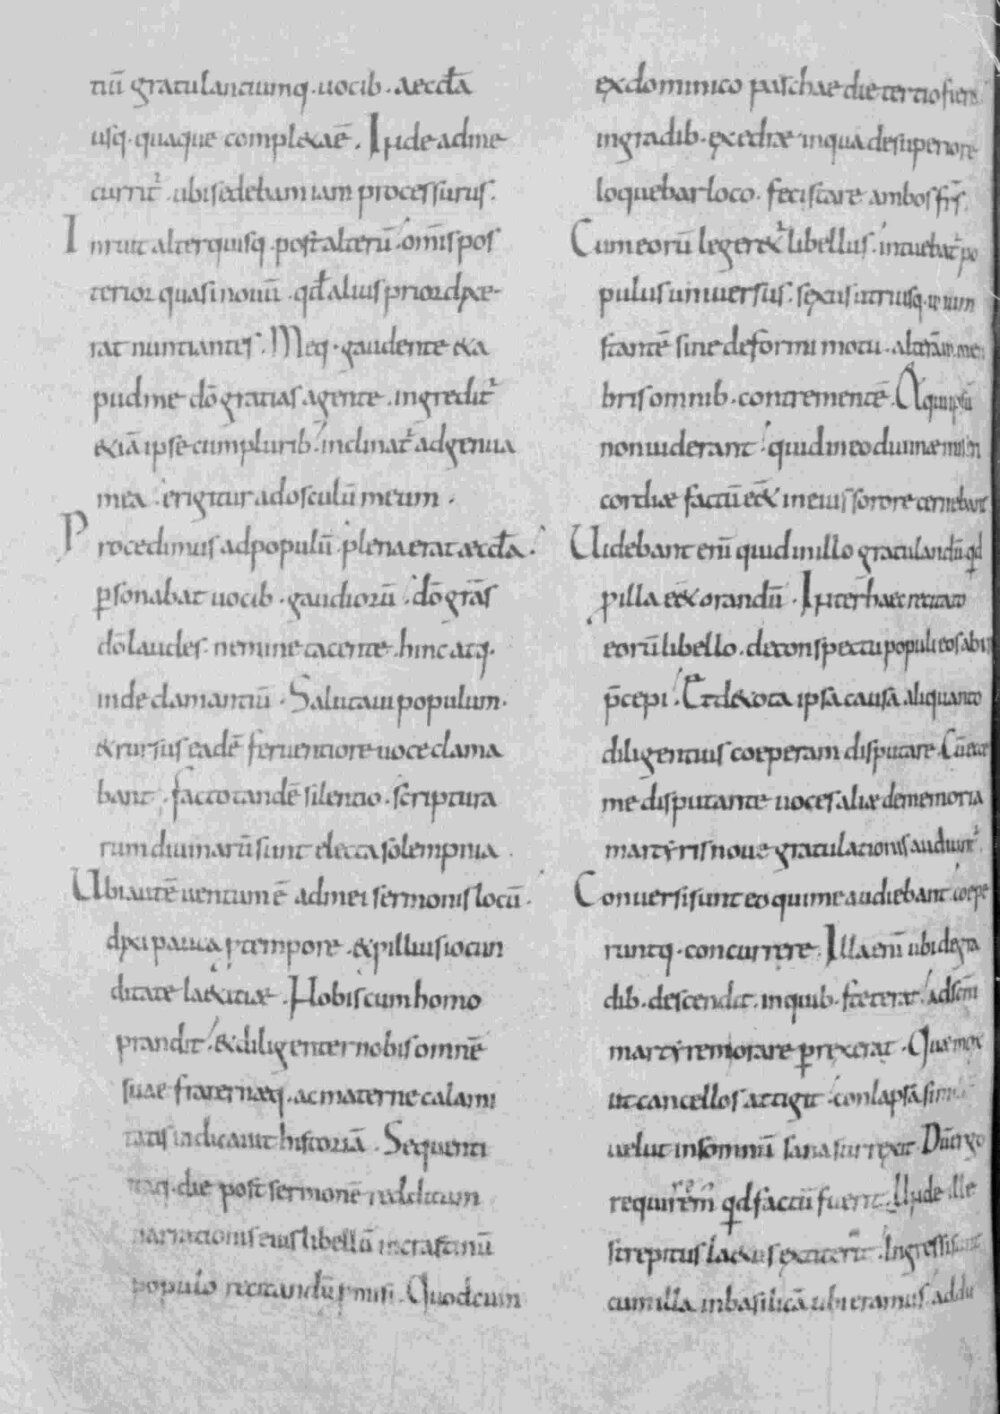 tiū gratulantiumq· uocib· aeccła
usq· quaque complexaē. Inde ad me
currit̄· ubi sedebam iam processurus.
Inruit alter quisq· post alterū· om̄is pos
terior quasi nouū· qđ alius prior dixe-
rat nuntiantes. Meq· gaudente & a
pud me dō gratias agente· ingredit̄
& iā ipse cum plurib· inclinat̄ ad genua
mea· erigitur ad osculū meum.
Procedimus ad populū· plena erat aeccła.
p̱sonabat uocib· gaudiorū· dō grās
dō laudes· nemine tacente· hinc atq·
inde clamantiū. Salutaui populum·
& rursus eadē feruentiore uoce clama
bant· facto tandē silentio· scriptura
rum diuinarū sunt lecta solempnia.
Ubi autē uentum ē ad mei sermonis locū·
dixi pauca p̱ tempore· & p̱ illius iocun
ditate laetitiae. Nobiscum homo
prandit· & diligenter nobis omnē
suae fraternaeq· ac materne calami
tatis indicauit historiā. Sequenti
itaq· die post sermonē redditum
narrationis eius libellū in crastinū
populo recitandū p̱misi. Quod cum
ex dominico paschae die tertio fieret
in gradib· exedrae in qua de superiore
loquebar loco· feci stare ambos fr̄s.
Cum eorū legeret̄ libellus· intuebat̄ po
pulus uniuersus· sexus utriusq· unum
stantē sine deformi motu· alterā mem
bris omnib· contrementē. & qui ipsū
non uiderant· quid in eo diuinae miseri
cordiae factū eēt in eius sorore cernebant
Uidebant enī quid in illo gratulandū qđ
p̱ illa eēt orandū. Inter haec recitato
eorū libello· de conspectu populi eos abire
p̄cepi. Et de tota ipsa causa aliquanto
diligentius coeperam disputare. Cū ecce
me disputante uoces aliae de memoria
martyris noue gratulationis audiunt̄.
Conuersi sunt eo qui me audiebant coepe
runtq· concurrere. Illa enī ubi de gra
dib· descendit· in quib· steterat· ad sc̄m
martyrem orare p̱rexerat. Quae mox
ut cancellos attigit· conlapsa similiter
uelut in somnū sana surrexit. Dū ergo
requirerem̄ qđ factū fuerit· unde ille
strepitus laetus extiterit· Ingressi sunt
cum illa in basilicā ubi eramus· addu